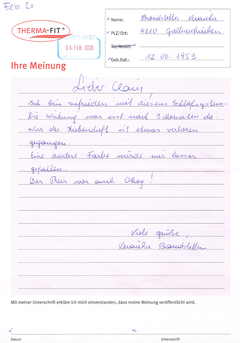 Feb 20
THERMA-FIT®
06 FEB. 2020
Name: Brandstetter Veronika
PLZ/Ort: 4210 Gallneukirchen
Tel./Mobil:
Geb.Dat.: 12.06.1953
Ihre Meinung
Lieber Claus,
Ich bin zufrieden mit diesem Schlafsystem.
Die Wirkung war erst nach 2 Monaten da.
Nur der Kuhenduft ist etwas verloren
gegangen.
Eine andere Farbe würde mir besser
gefallen.
Der Preis war auch Okay!
Viele Grüße,
Veronika Brandstetter
Mit meiner Unterschrift erkläre ich mich einverstanden, dass meine Meinung veröffentlicht wird.
Datum Unterschrift